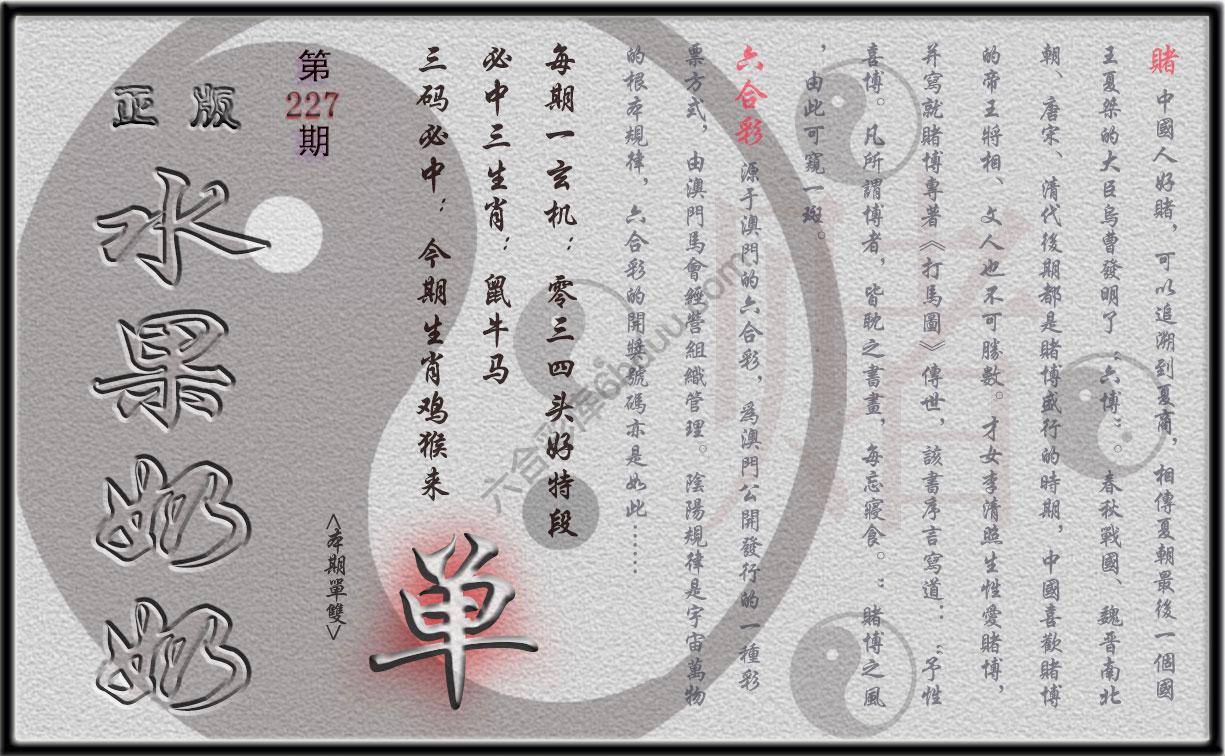 賭 中國人好賭，可以追溯到夏商，相傳夏朝最後一個國
王夏桀的大臣烏曹發明了“六博”。春秋戰國、魏晉南北
朝、唐宋、清代後期都是賭博盛行的時期，中國喜歡賭博
的帝王將相、文人也不可勝數。才女李清照生性愛賭博，
并寫就賭博專著《打馬圖》傳世，該書序言寫道：“予性
喜博。凡所謂博者，皆耽之書畫，每忘寢食。”賭博之風
，由此可窺一斑。
六合彩 源于澳門的六合彩，為澳門公開發行的一種彩
票方式，由澳門馬會經營組織管理。陰陽規律是宇宙萬物
的根本規律，六合彩的開獎號碼亦是如此……
每期一玄机：零三四头好特段
必中三生肖：鼠牛马
三码必中：今期生肖鸡猴来
第
227
期
<本期單雙>
单
正版
水果奶奶
賭